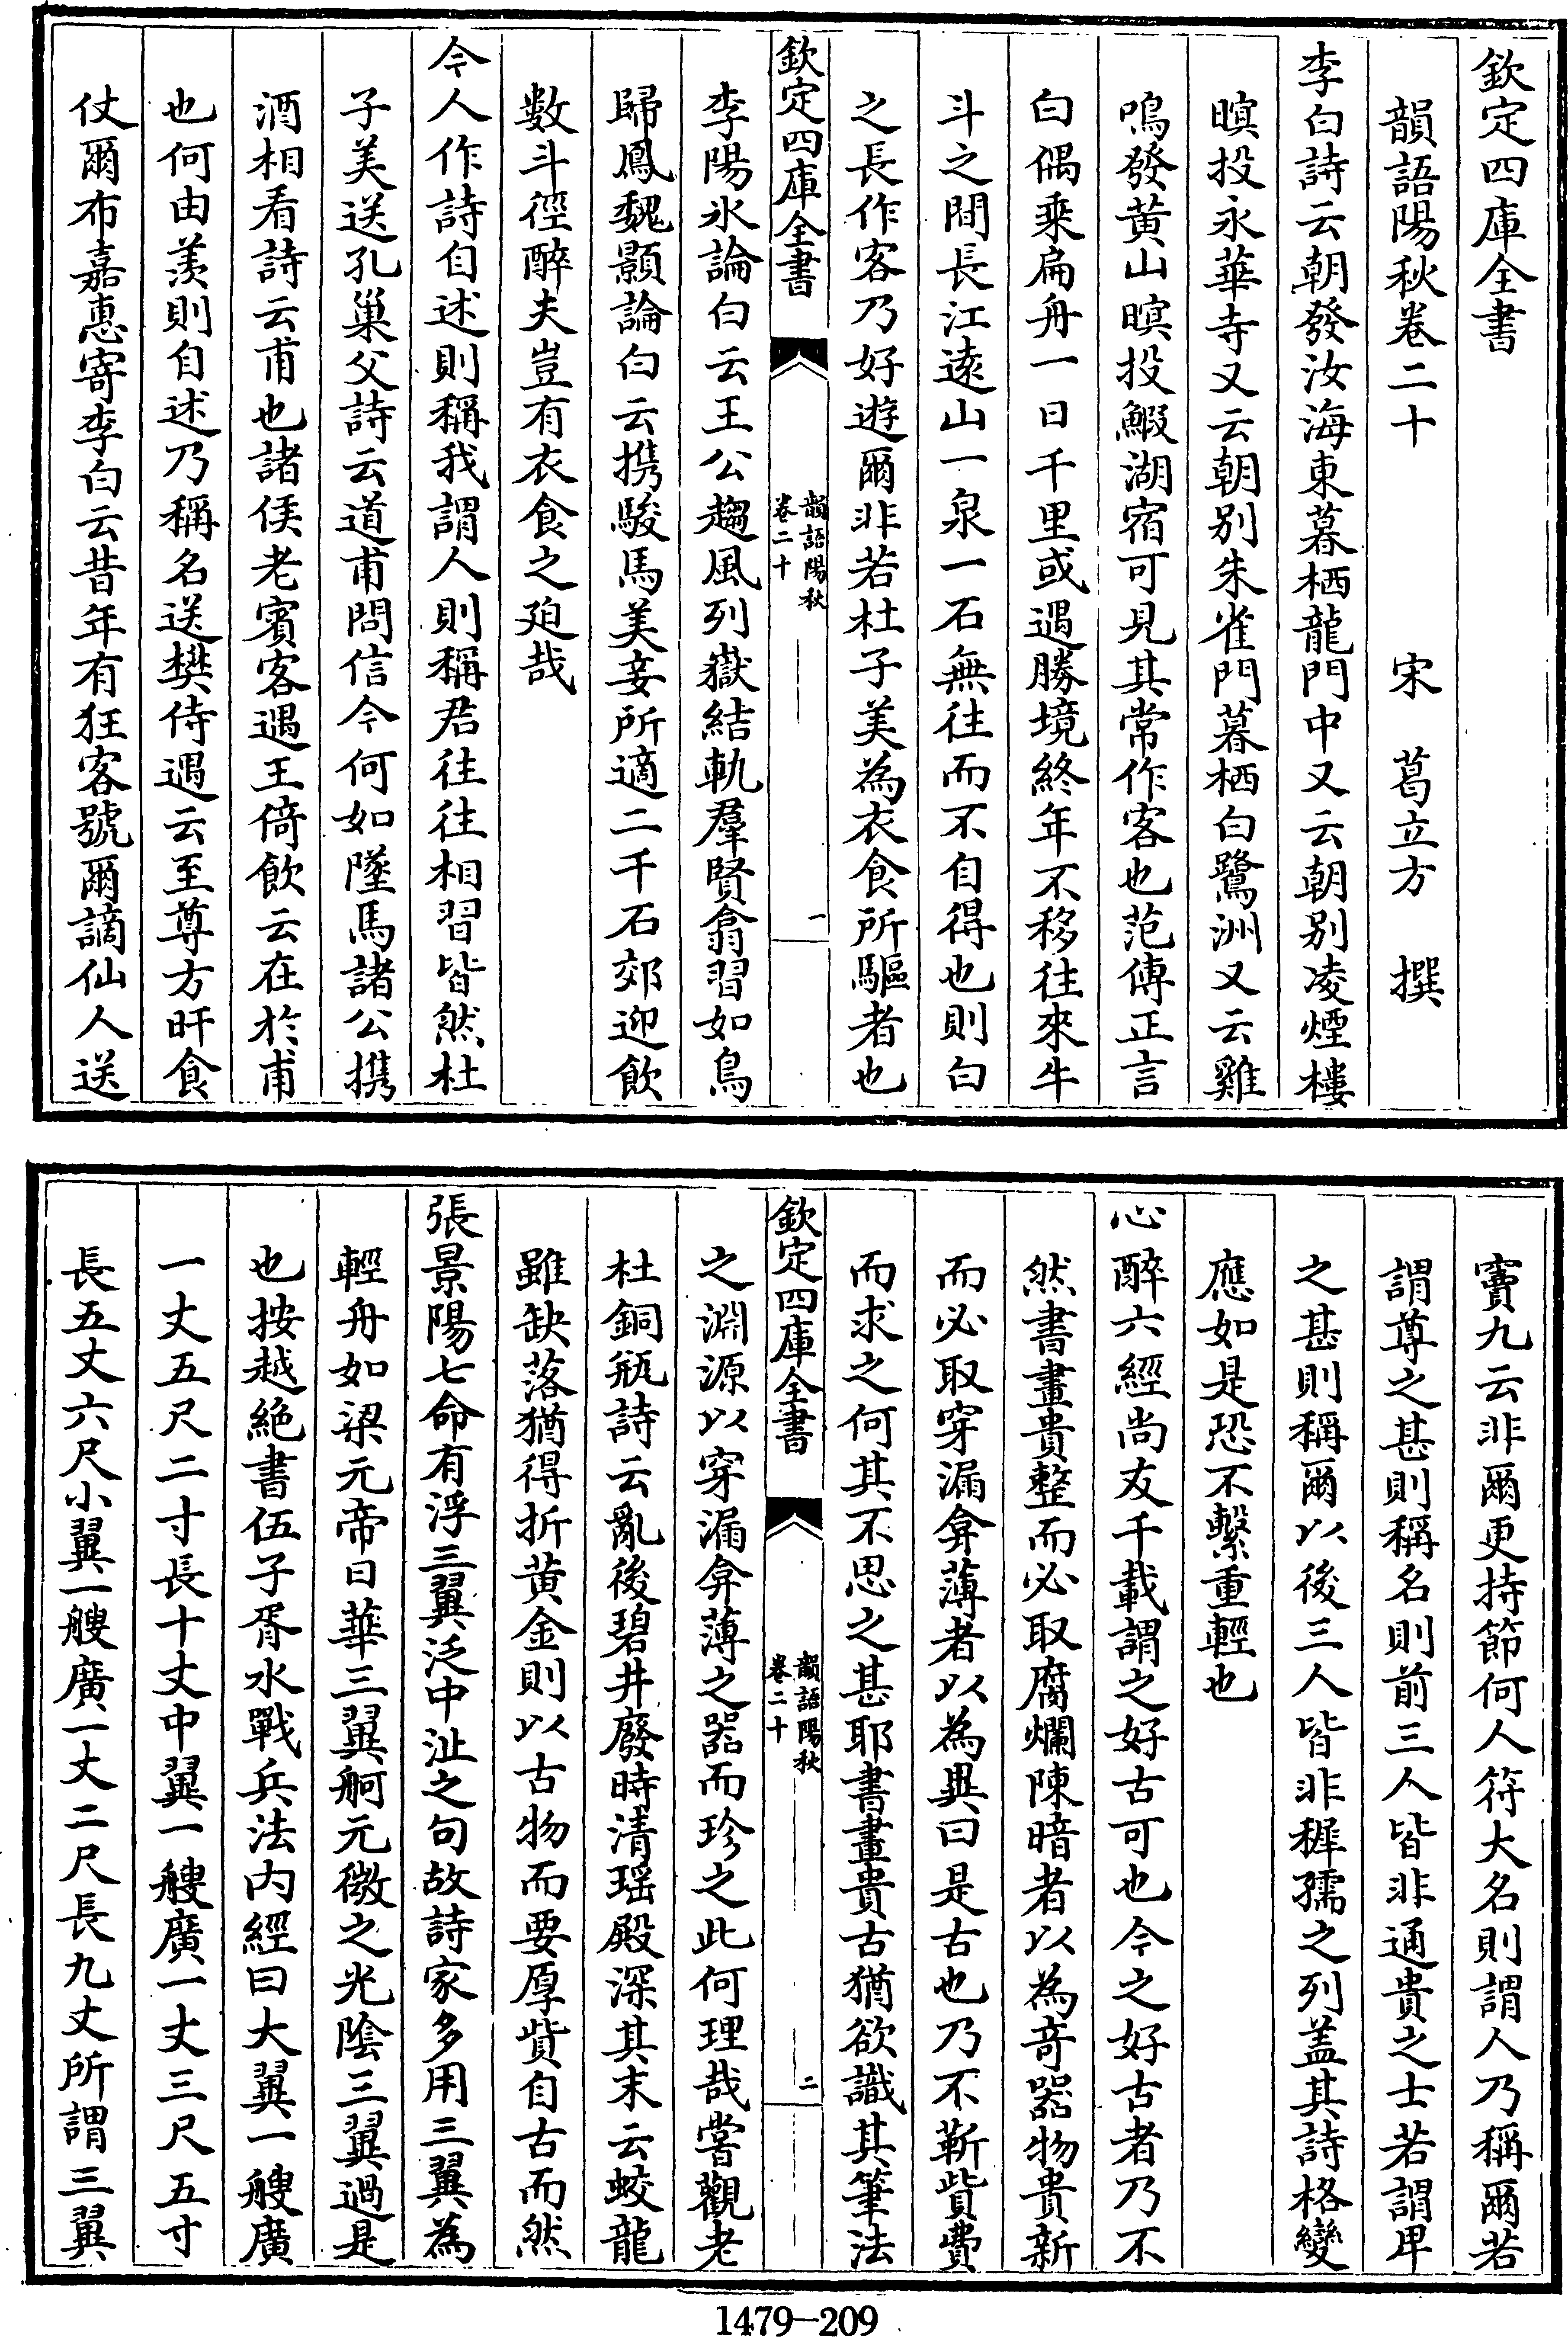 欽定四庫全書
韻語陽秋卷二十　宋　葛立方　撰
李白詩云朝發汝海東暮栖龍門中又云朝别凌煙樓
暝投永華寺又云朝别朱雀門暮栖白鷺洲又云雞
鳴發黄山暝投鰕湖宿可見其常作客也范傳正言
白偶乘扁舟一日千里或遇勝境終年不移往來牛
斗之間長江逺山一泉一石無往而不自得也則白
之長作客乃好遊爾非若杜子美為衣食所驅者也
欽定四庫全書
韻語陽秋
卷二十
一
李陽氷論白云王公趨風列嶽結軌羣賢翕習如鳥
歸鳳魏顥論白云携駿馬美妾所適二千石郊迎飲
數斗徑醉夫豈有衣食之廹哉
今人作詩自述則稱我謂人則稱君往往相習皆然杜
子美送孔巢父詩云道甫問信今何如墜馬諸公携
酒相看詩云甫也諸侯老賓客遇王倚飲云在於甫
也何由羨則自述乃稱名送樊侍遇云至尊方旰食
仗爾布嘉惠寄李白云昔年有狂客號爾謫仙人送
竇九云非爾更持節何人符大名則謂人乃稱爾若
謂尊之甚則稱名則前三人皆非通貴之士若謂卑
之甚則稱爾以後三人皆非穉孺之列盖其詩格變
應如是恐不繫重輕也
心醉六經尚友千載謂之好古可也今之好古者乃不
然書畫貴整而必取腐爛陳暗者以為奇器物貴新
而必取穿漏弇薄者以為異曰是古也乃不靳貲費
而求之何其不思之甚耶書畫貴古猶欲識其筆法
欽定四庫全書
韻語陽秋
卷二十
二
之淵源以穿漏弇薄之器而珍之此何理哉嘗觀老
杜銅瓶詩云亂後碧井廢時清瑶殿深其末云蛟龍
雖缺落猶得折黄金則以古物而要厚貲自古而然
張景陽七命有浮三翼泛中沚之句故詩家多用三翼為
輕舟如梁元帝曰華三翼舸元微之光陰三翼過是
也按越絶書伍子胥水戰兵法内經曰大翼一艘廣
一丈五尺二寸長十丈中翼一艘廣一丈三尺五寸
長五丈六尺小翼一艘廣一丈二尺長九丈所謂三翼
1479-209